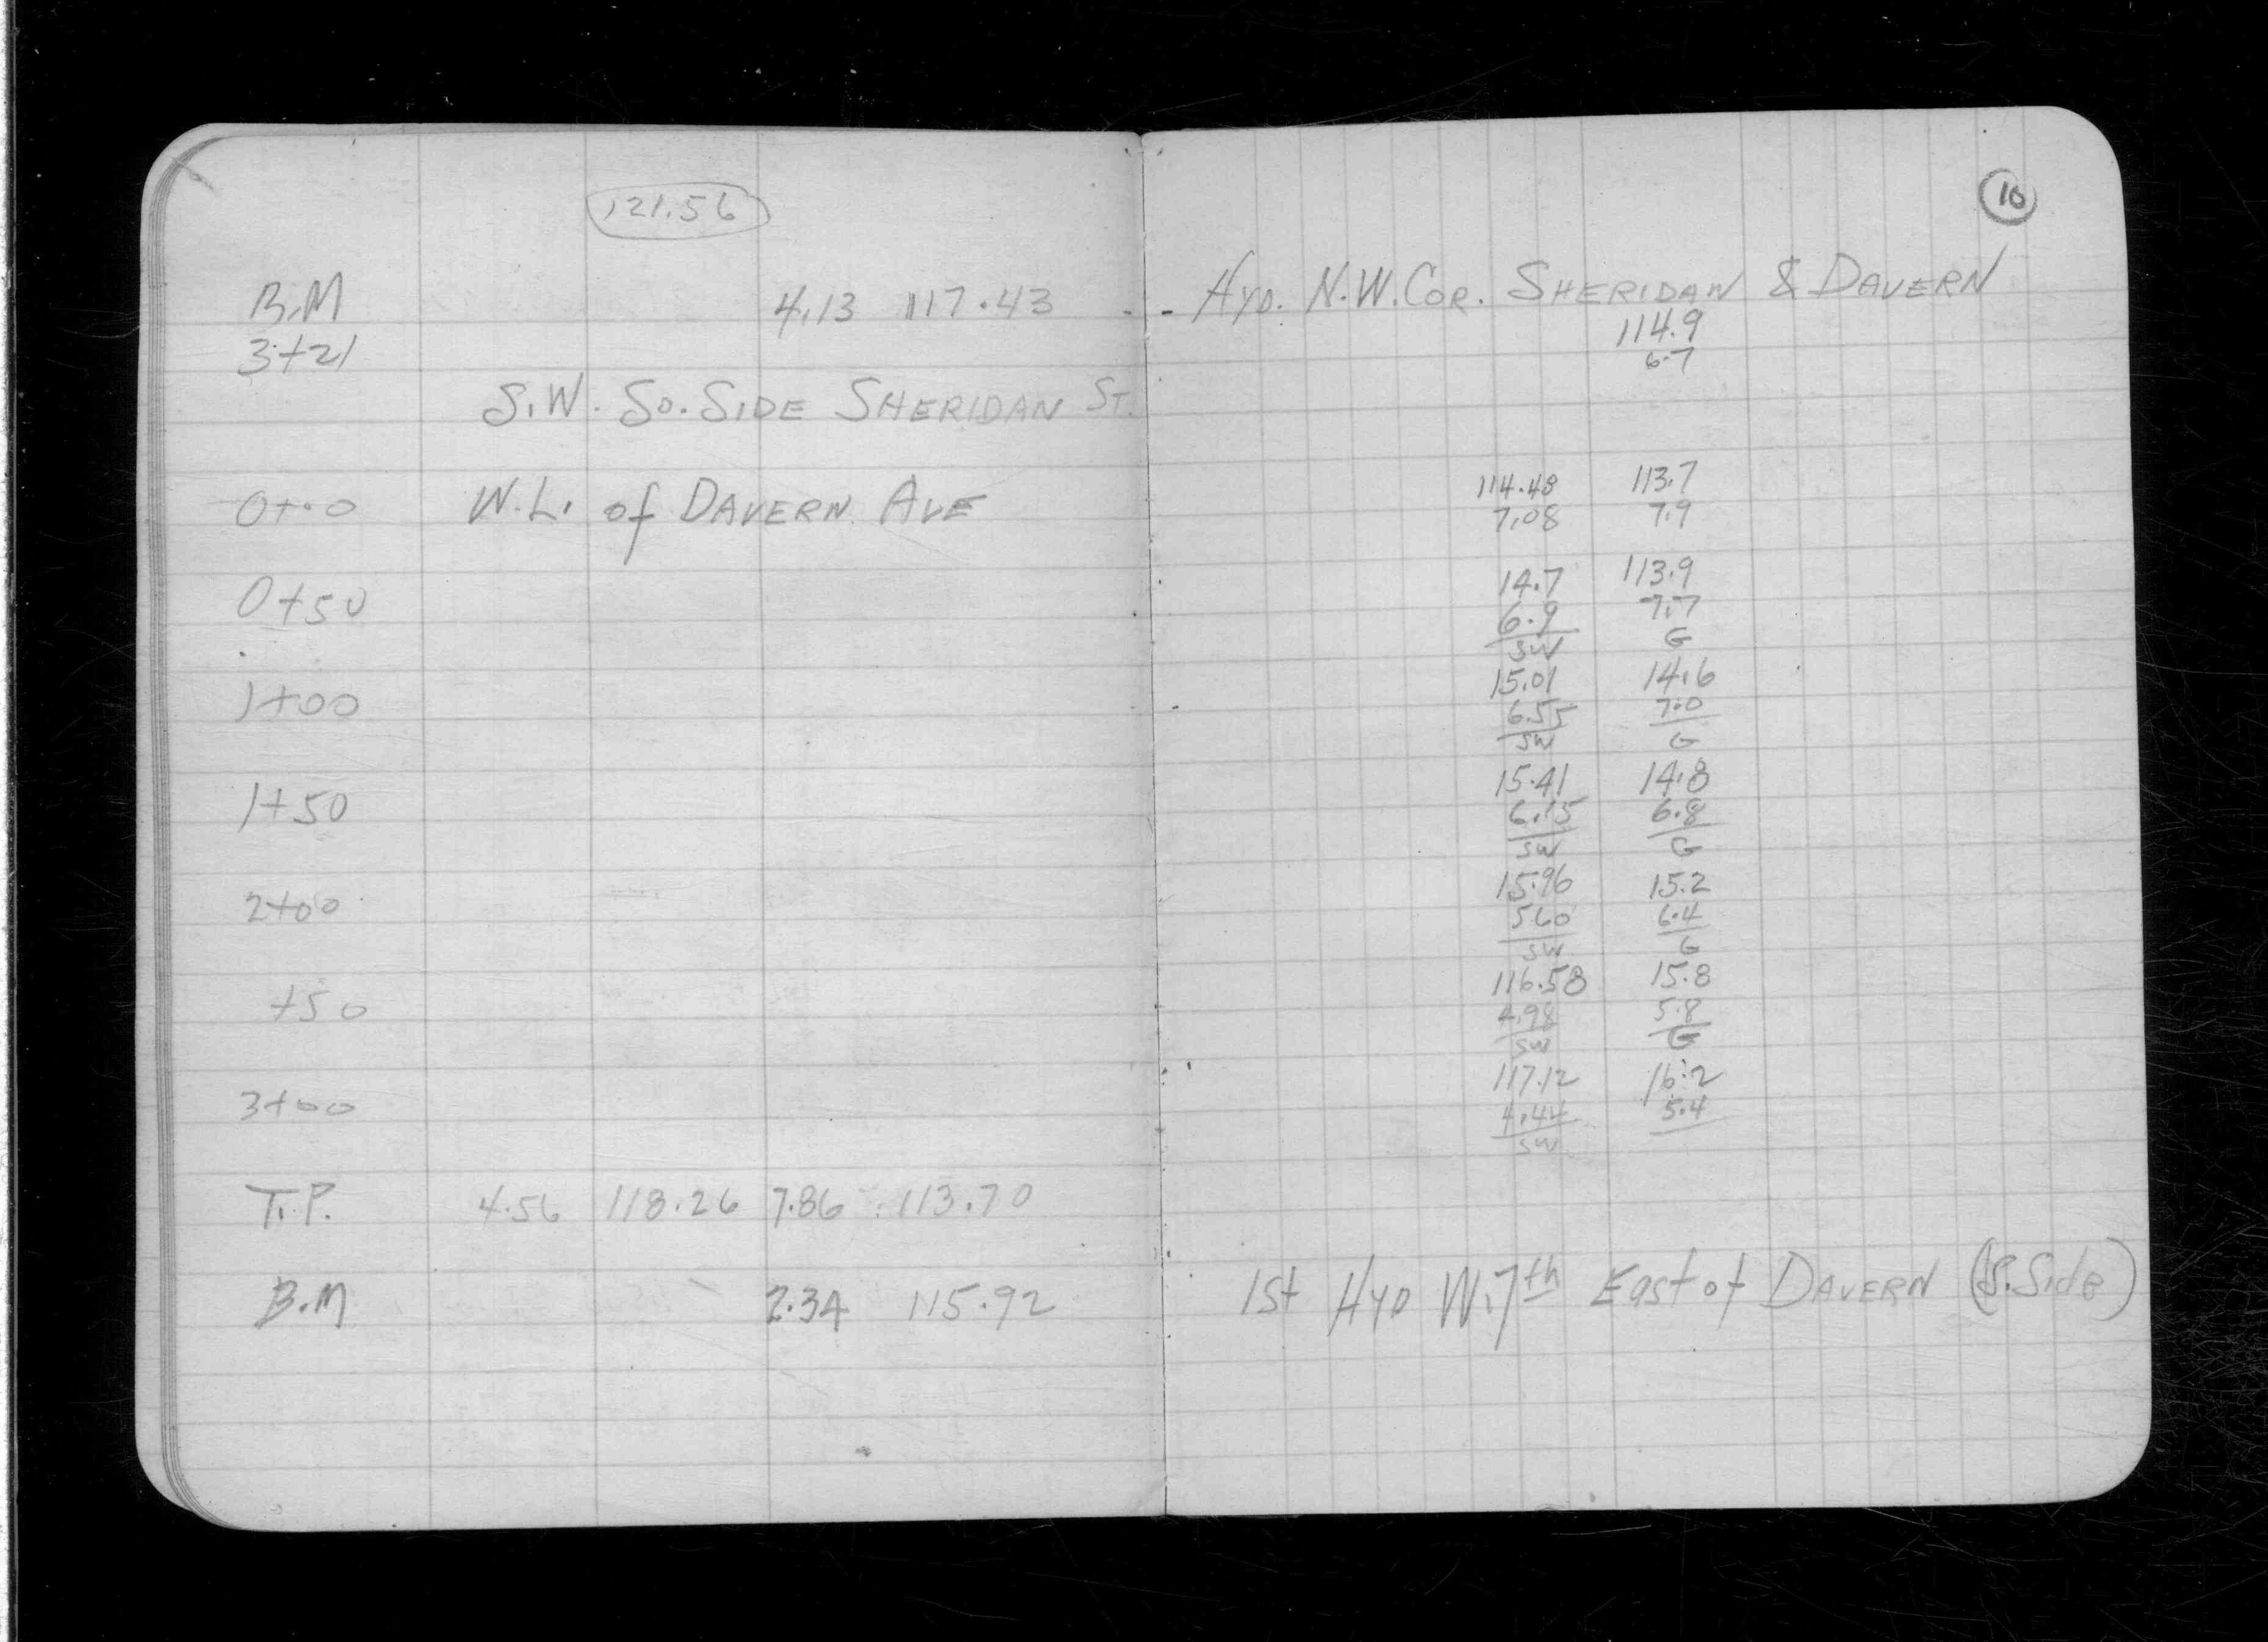 121.56
10
B.M 4.13 117.43 - - Hyd. N.W. Cor. Sheridan & Davern
3+21 114.9
6.7
S.W. So. Side Sheridan St.
114.48 113.7
0+00 W.L. of Davern Ave 7.08 7.9
14.7 113.9
0+50 6.9 7.7
SW G
15.01 14.6
1+00 6.55 7.0
SW G
15.41 14.8
1+50 6.15 6.8
SW G
15.96 15.2
2+00 5.60 6.4
SW G
116.58 15.8
+50 4.98 5.8
SW G
117.12 16.2
3+00 4.44 5.4
SW
T.P. 4.56 118.26 7.86 113.70
B.M 2.34 115.92 1st Hyd W. 7th East of Davern (S. Side)